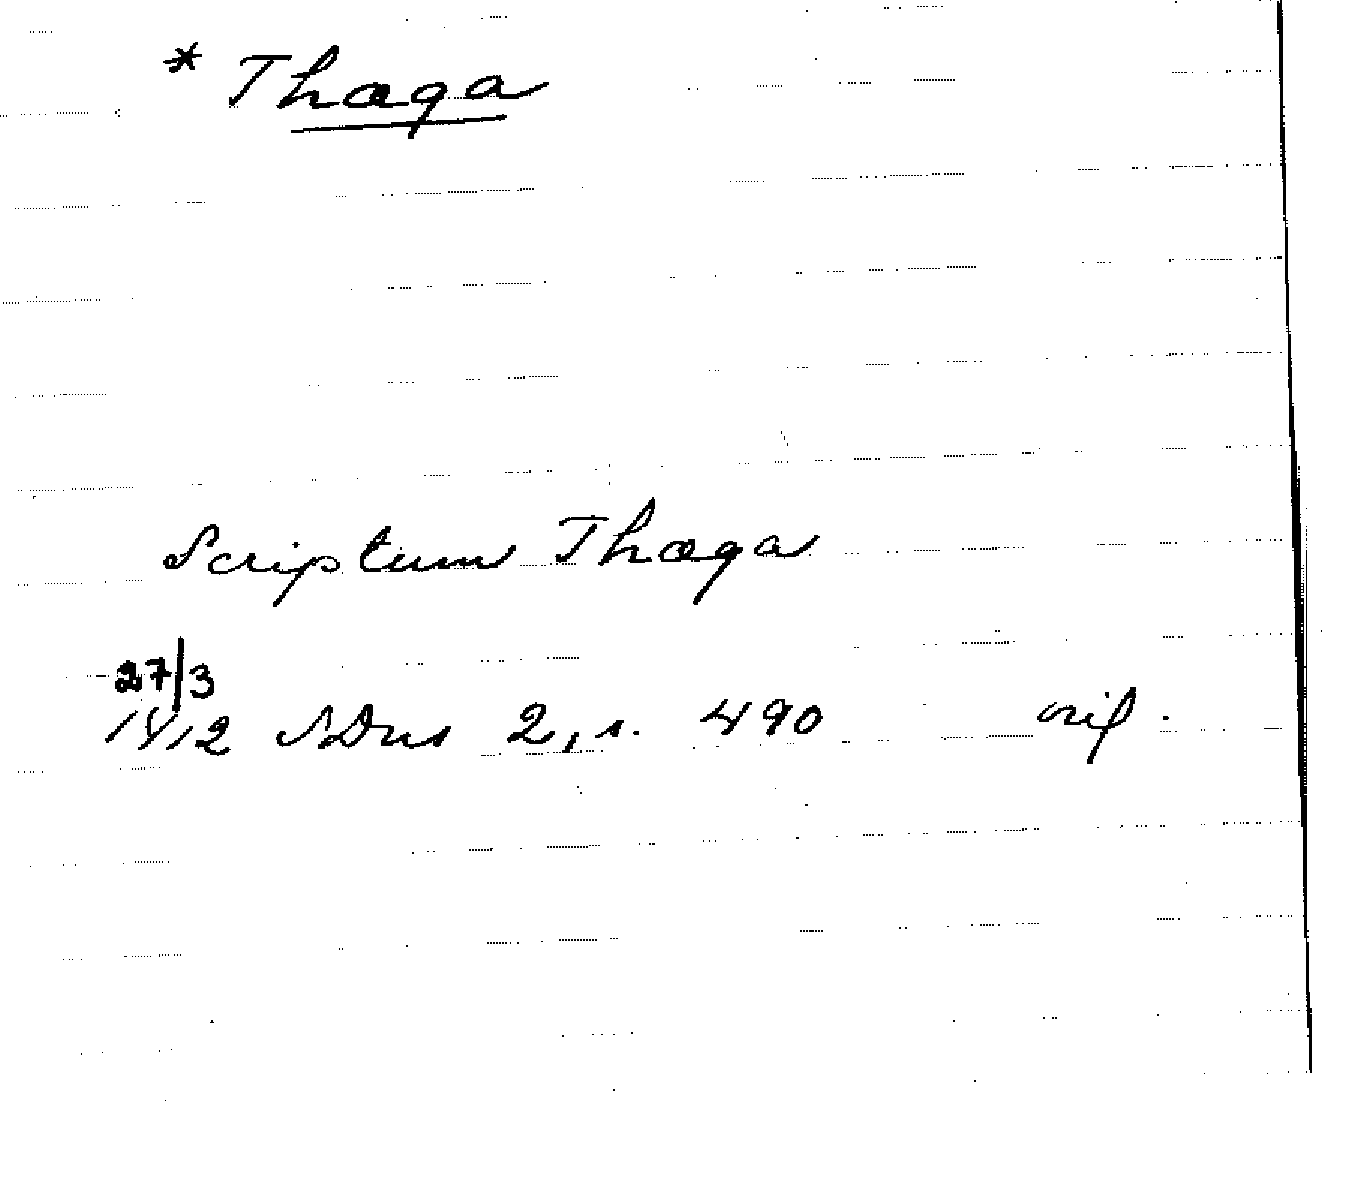 * Thaga
Scriptum Thaga
27/3
1412 SDns 2, s. 490 orig.